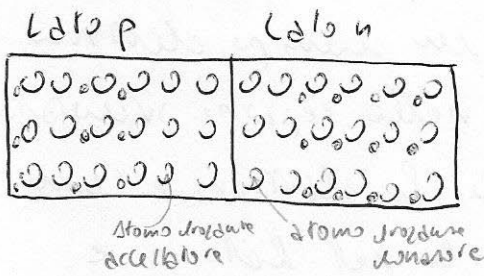 Lato p
Lato n
Atomo drogante
accettatore
atomo drogante
donatore